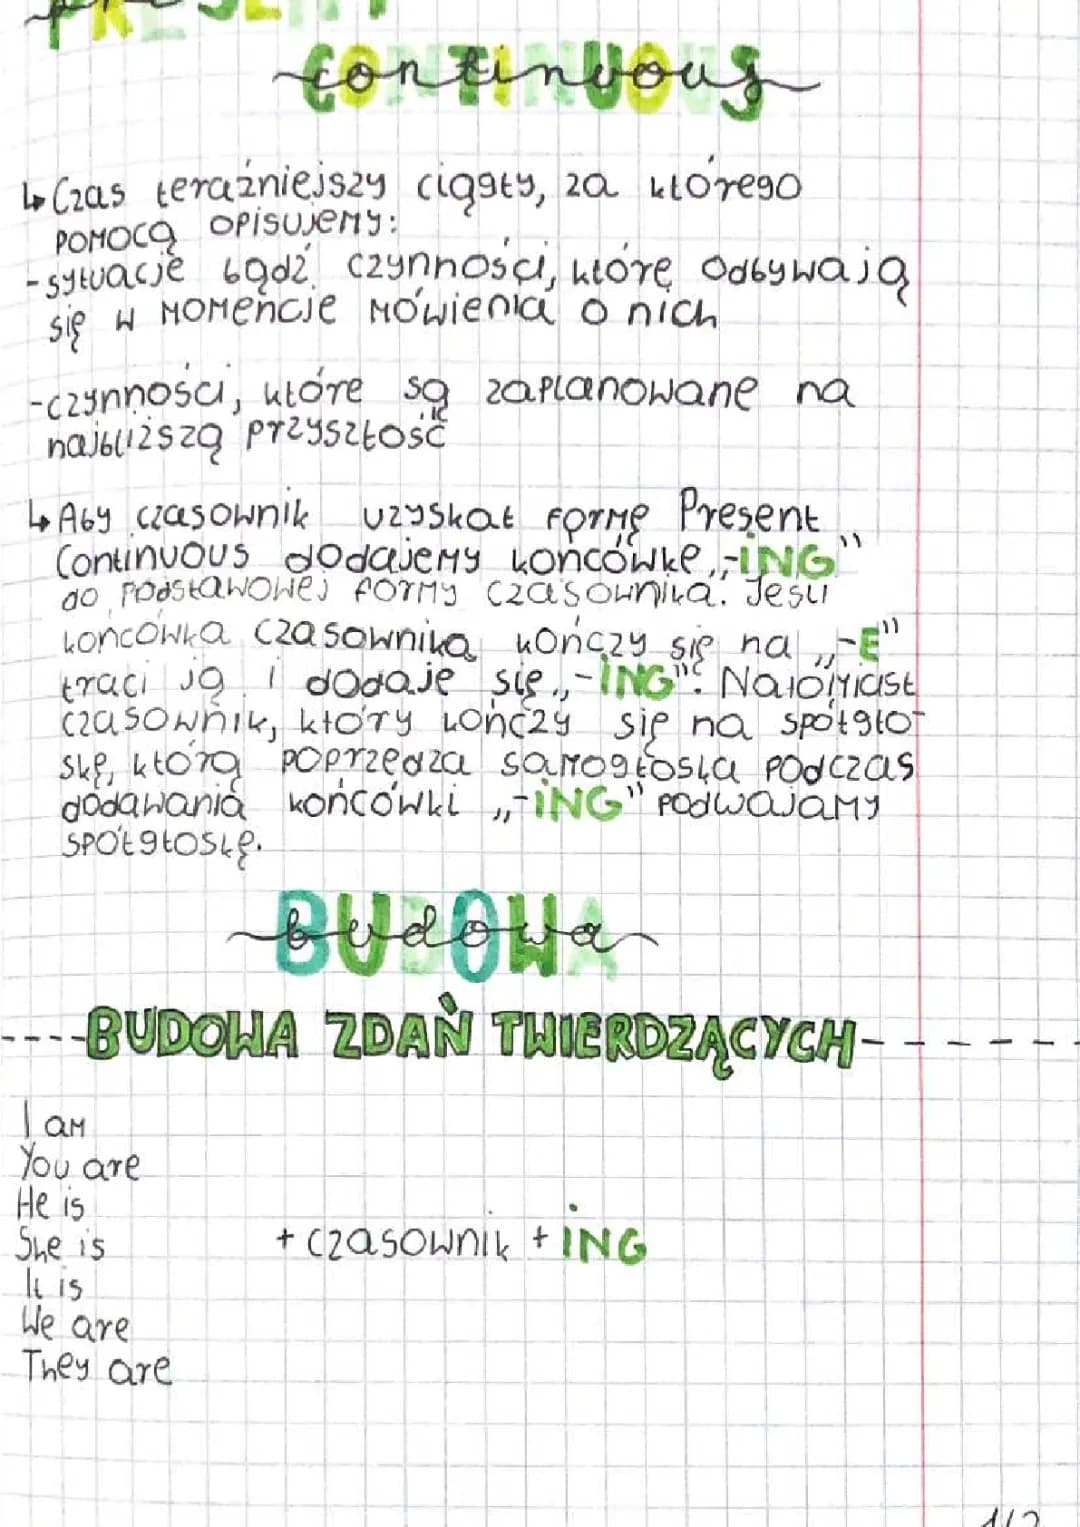 PRESENT
continuous
↳ Czas teraźniejszy ciągły, za którego
pomocą opisujemy:
- sytuacje bądź czynności, które odbywają
się w momencie mówienia o nich
- czynności, które są zaplanowane na
najbliższą przyszłość
↳ Aby czasownik uzyskał formę Present
Continuous dodajemy końcówkę „-ING"
do podstawowej formy czasownika. Jeśli
końcówka czasownika kończy się na „-E"
traci ją i dodaje się „-ING". Natomiast
czasownik, który kończy się na spółgło-
skę, którą poprzedza samogłoska podczas
dodawania końcówki „-ING" podwajamy
spółgłoskę.
budowa
----BUDOWA ZDAŃ TWIERDZĄCYCH------
I am
You are
He is
She is + czasownik + ING
It is
We are
They are